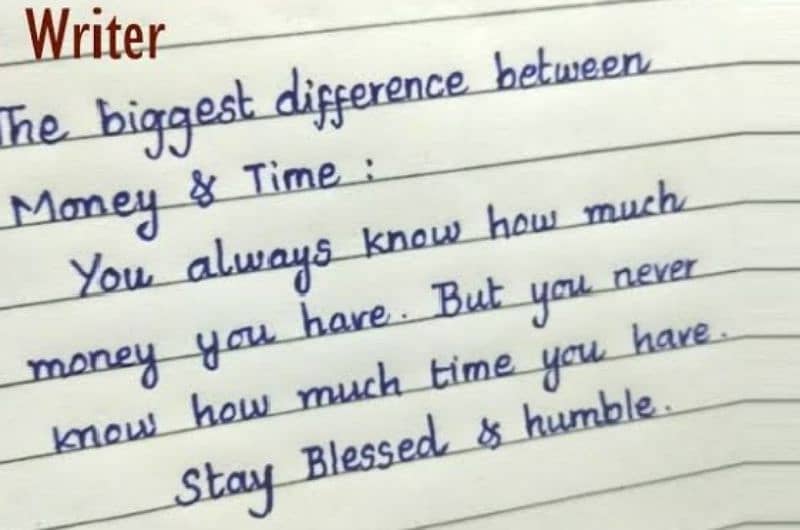 Writer
The biggest difference between
Money & Time :
You always know how much
money you have. But you never
know how much time you have.
Stay Blessed & humble.